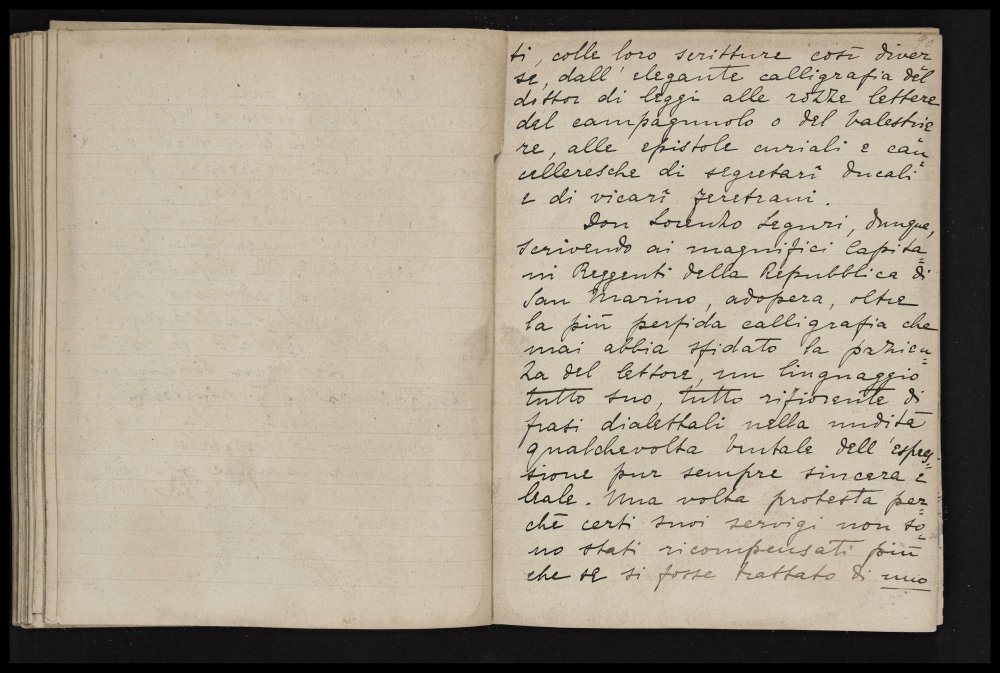 90
ti, colle loro scritture così diver
se, dall'elegante calligrafia del
dottor di leggi alle rozze lettere
del campagnuolo o del balestrie
re, alle epistole curiali e can=
celleresche di segretarî ducali
e di vicarî feretrani.
Don Lorenzo Seguri, dunque,
scrivendo ai magnifici Capita=
ni Reggenti della Repubblica di
San Marino, adopera, oltre
la più perfida calligrafia che
mai abbia sfidato la pazien=
za del lettore, un linguaggio
tutto suo, tutto rifiorente di
frasi dialettali nella nudità
qualchevolta brutale dell'espres=
sione pur sempre sincera e
leale. Una volta protesta per=
chè certi suoi servigi non so=
no stati ricompensati più
che se si fosse trattato di uno